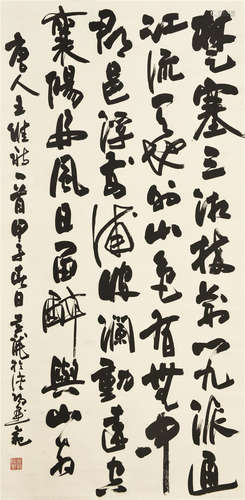 楚塞三湘接荊门九派通
江流天地外山色有無中
郡邑浮前浦波瀾動遠空
襄陽好風日留醉與山翁
唐人王維詩一首甲子春日